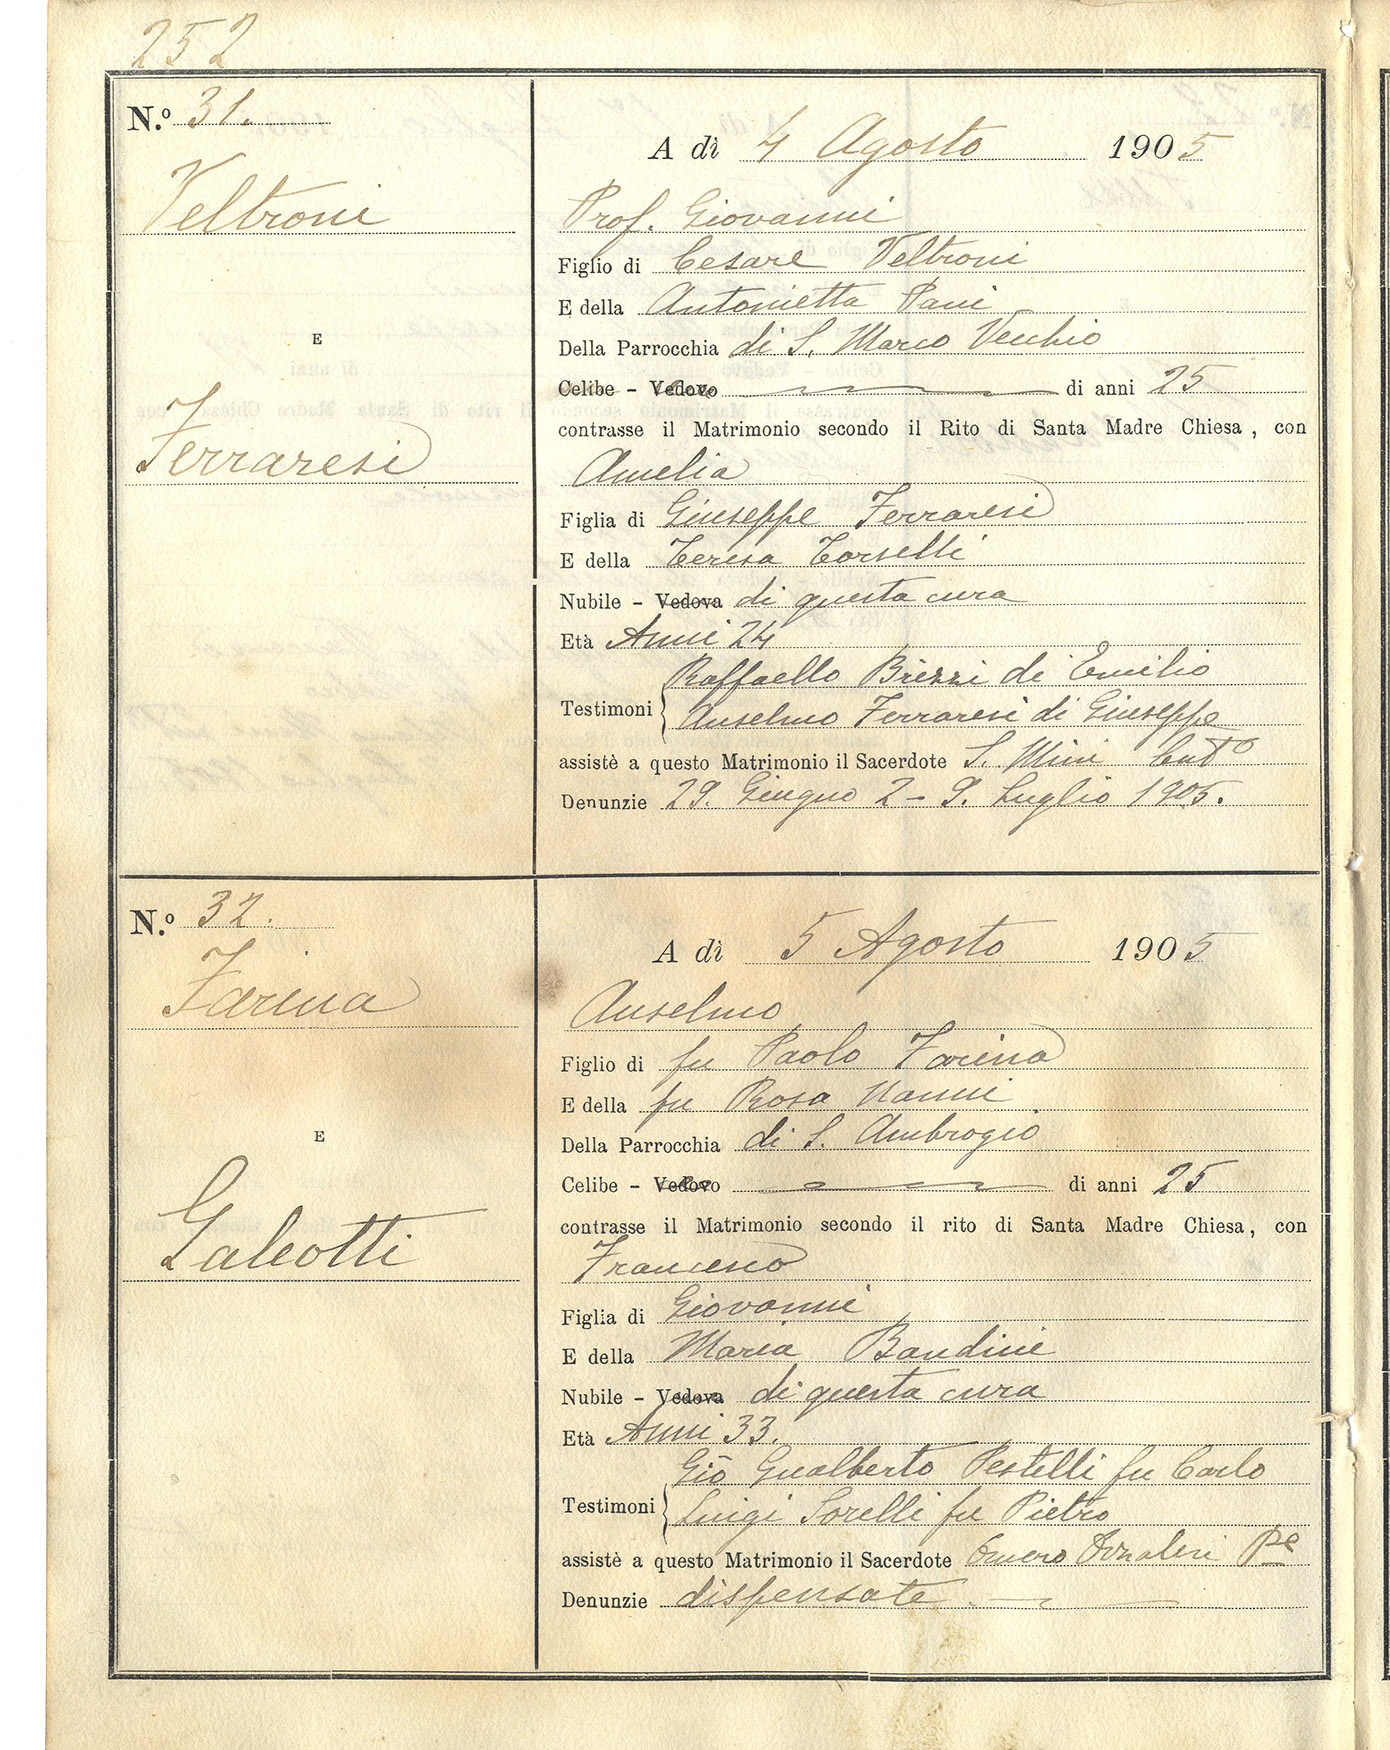 252
N.º 31.
Veltroni
E
Ferraresi
A dì 4 Agosto 1905
Prof. Giovanni
Figlio di Cesare Veltroni
E della Antonietta Pani
Della Parrocchia di S. Marco Vecchio
Celibe - Vedovo di anni 25
contrasse il Matrimonio secondo il Rito di Santa Madre Chiesa, con
Amelia
Figlia di Giuseppe Ferraresi
E della Teresa Torselli
Nubile - Vedova di questa cura
Età Anni 24
Raffaello Brizzi di Emilio
Testimoni { Anselmo Ferraresi di Giuseppe
assistè a questo Matrimonio il Sacerdote S. Mini
Denunzie 29. Giugno 2 - 9. Luglio 1905.
N.º 32.
Farina
E
Galeotti
A dì 5 Agosto 1905
Anselmo
Figlio di fu Paolo Farina
E della fu Rosa Nanni
Della Parrocchia di S. Ambrogio
Celibe - Vedovo di anni 25
contrasse il Matrimonio secondo il rito di Santa Madre Chiesa, con
Francesca
Figlia di Giovanni
E della Maria Bandini
Nubile - Vedova di questa cura
Età Anni 33.
Gio Gualberto Pestelli fu Carlo
Testimoni { Luigi Sorelli fu Pietro
assistè a questo Matrimonio il Sacerdote Omero
Denunzie dispensate